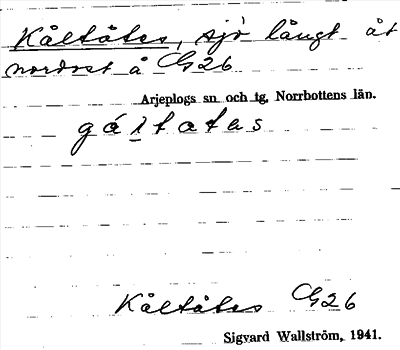 Kåltåtes, sjö långt åt
nordost å G26
Arjeplogs sn och tg, Norrbottens län.
gáltatas
Kåltåtes G26
Sigvard Wallström, 1941.